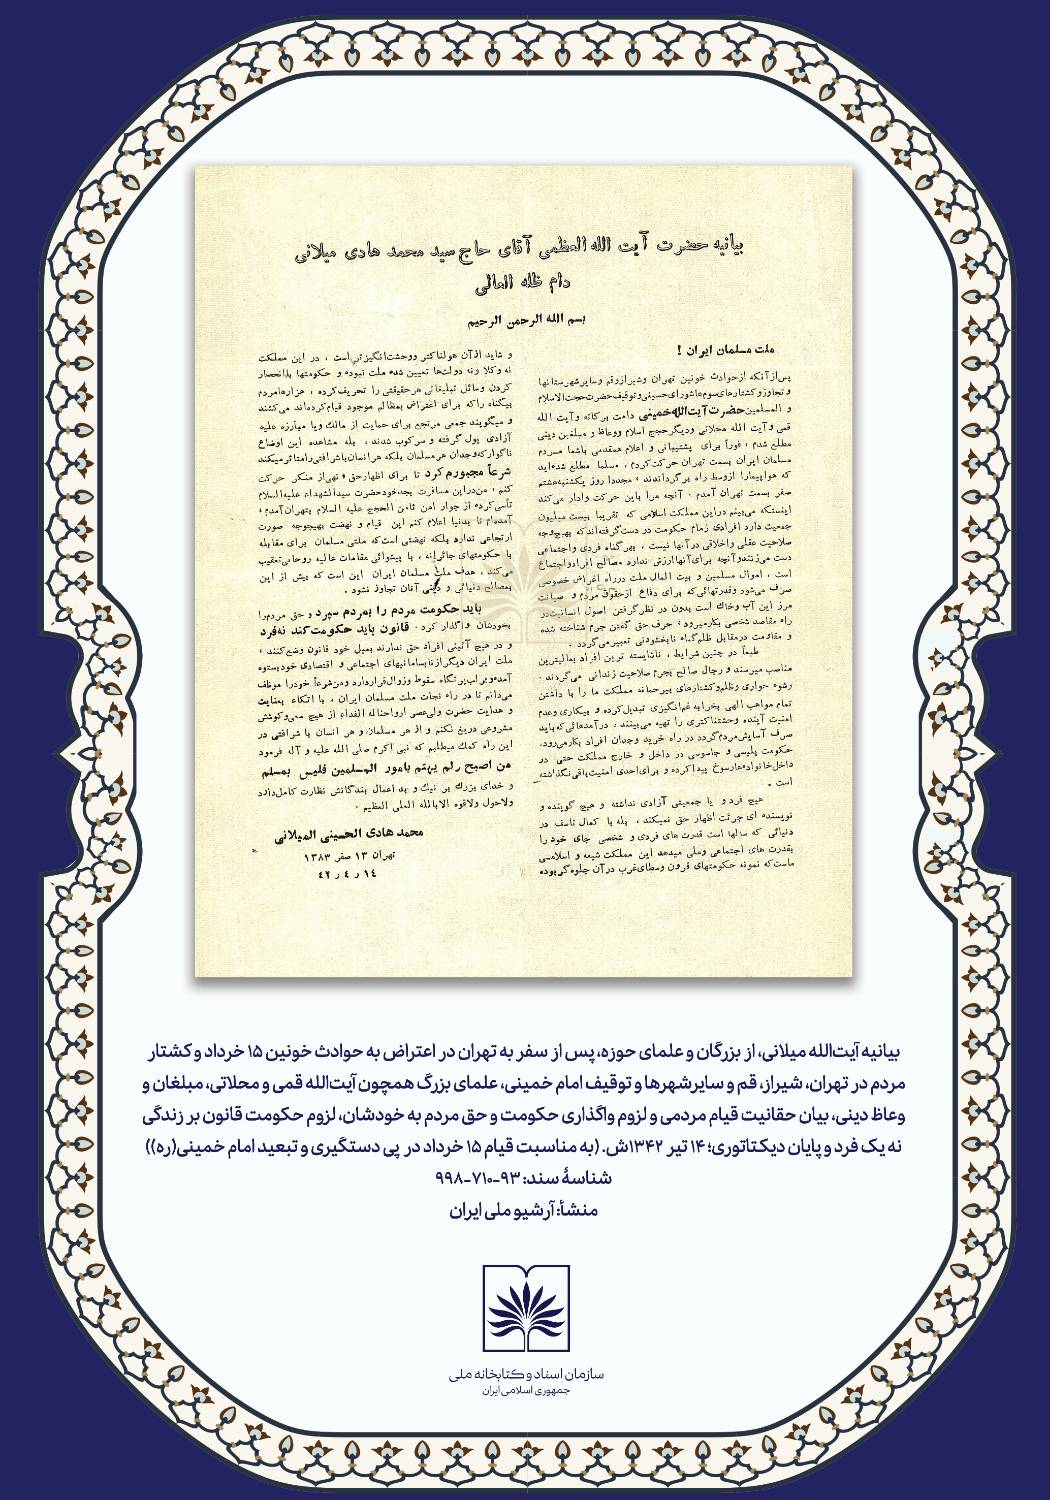 بیانیه حضرت آیت الله العظمی آقای حاج سید محمد هادی میلانی
دام ظله العالی
بسم الله الرحمن الرحیم
ملت مسلمان ایران !
پس‌از آنکه ازحوادث خونین تهران وشیرازوقم وسایرشهرستانها
و تجاوزوکشتارهای‌سوم‌عاشورای‌حسینی‌وتوقیف‌حضرت‌حجت‌الاسلام
و المسلمین حضرت آیت‌الله‌خمینی دامت برکاته وآیت الله
قمی وآیت الله محلاتی ودیگرحجج اسلام ووعاظ و مبلغین دینی
مطلع شدم ، فوراً برای پشتیبانی و اعلام همقدمی باشما مردم
مسلمان ایران بسمت تهران حرکت‌کردم ، مسلما مطلع شده‌اید
که هواپیمارا ازوسط راه برگرداندند ، مجددا روز یکشنبه‌هشتم
صفر بسمت تهران آمدم . آنچه مرا باین حرکت وادار می‌کند
اینستکه می‌بینم دراین مملکت اسلامی که تقریبا بیست میلیون
جمعیت دارد افرادی زمام حکومت در دست‌گرفته‌اندکه بهیچ‌وجه
صلاحیت عقلی واخلاقی درآنها نیست ، بهرگناه فردی واجتماعی
دست می‌زنندوآنچه برای‌آنهاارزش ندارد مصالح افرادواجتماع
است ، اموال مسلمین و بیت المال ملت درراه اغراض خصوصی
صرف می‌شود وقدرتهائی‌که برای دفاع ازحقوق مردم و صیانت
مرز این آب وخاک است بدون در نظرگرفتن اصول انسانیت‌در
راه مقاصد شخصی بکارمیرود ، حرف حق گفتن جرم شناخته شده
و مقاومت درمقابل ظلم‌گناه نابخشودنی تعبیرمی‌گردد .
طبعاً در چنین شرایط ، ناشایسته ترین افراد بعالیترین
مناصب میرسند و رجال صالح بجرم صلاحیت زندانی می‌گردند .
رشوه خواری وظلم‌وکشتارهای بیرحمانه مملکت ما را با داشتن
تمام مواهب الهی بخرابه غم‌انگیزی تبدیل‌کرده و بیکاری وعدم
امنیت آینده وحشتناکتری را تهیه می‌بینند ، درآمدهائی‌که‌باید
صرف آسایش‌مردم‌گردد در راه خرید وجدان افراد بکارمی‌رود.
حکومت پلیسی و جاسوسی در داخل و خارج مملکت حتی در
داخل‌خانواده‌هارسوخ پیداکرده و برای‌احدی امنیت‌باقی‌نگذاشته
است .
هیچ فرد و یا جمعیتی آزادی نداشته و هیچ گوینده و
نویسنده ای جرئت اظهار حق نمیکند ، بله با کمال تاسف در
دنیائی که سالها است قدرت های فردی و شخصی جای خود را
بقدرت های اجتماعی وملی میدهد این مملکت شیعه و اسلامی
ماست‌که نمونه حکومتهای قرون وسطای‌غرب درآن جلوه‌گربوده
و شاید الآن هولناکتر ووحشت‌انگیزتر است ، در این مملکت
نه وکلا ونه دولت‌ها تعیین شده ملت نبوده و حکومتها باانحصار
کردن وسائل تبلیغاتی هرحقیقتی را تحریف‌کرده ، هزارهامردم
بیگناه راکه برای اعتراض بمظالم موجود قیام‌کرده‌اند می‌کشند
و میگویند جمعی مرتجع برای حمایت از مالک ویا مبارزه علیه
آزادی پول گرفته و سرکوب شدند ، بله مشاهده این اوضاع
ناگوارکه‌وجدان هرمسلمان بلکه هرانسان‌باشرافتی‌رامتاثرمیکند
شرعاً مجبورم کرد تا برای اظهارحق ونهی‌از منکر حرکت
کنم ، من‌دراین مسافرت بجدخودحضرت سیدالشهداء علیه‌السلام
تأسی‌کرده از جوار امن ثامن الحجج علیه السلام بتهران‌آمدم ،
آمده‌ام تا بدنیا اعلام کنم این قیام و نهضت بهیچوجه صورت
ارتجاعی ندارد بلکه نهضتی است‌که ملتی مسلمان برای مقابله
با حکومتهای جائرانه ، با پیشوائی مقامات عالیه روحانی‌تعقیب
می‌کند ، هدف ملت مسلمان ایران این است که بیش از این
بمصالح دنیائی و دینی آنان تجاوز نشود .
باید حکومت مردم را بمردم سپرد و حق مردم‌را
بخودشان واگذار کرد . قانون باید حکومت‌کند نه‌فرد
و در هیچ آئینی افراد حق ندارند بمیل خود قانون وضع‌کنند ،
ملت ایران دیگرازنابسامانیهای اجتماعی و اقتصادی خودبستوه
آمده‌وبرلب‌پرتگاه سقوط وزوال‌قراردارد ومن‌شرعاً خودرا موظف
می‌دانم تا در راه نجات ملت مسلمان ایران ، با اتکاء بعنایت
و هدایت حضرت ولی‌عصر ارواحناله الفداء از هیچ سعی‌وکوشش
مشروعی دریغ نکنم و از هر مسلمان‌و هر انسان با شرافتی در
این راه کمک میطلبم که نبی اکرم صلی الله علیه و آله فرمود
من اصبح ولم یهتم بامور المسلمین فلیس بمسلم
و خدای بزرگ بر نیک و بد اعمال بندگانش نظارت کامل‌دارد
ولاحول ولاقوه الابالله العلی العظیم .
محمد هادی الحسینی المیلانی
تهران ۱۳ صفر ۱۳۸۳
۱۴ ر ۴ ر ۴۲
بیانیه آیت‌الله میلانی، از بزرگان و علمای حوزه، پس از سفر به تهران در اعتراض به حوادث خونین ۱۵ خرداد و کشتار
مردم در تهران، شیراز، قم و سایر شهرها و توقیف امام خمینی، علمای بزرگ همچون آیت‌الله قمی و محلاتی، مبلغان و
وعاظ دینی، بیان حقانیت قیام مردمی و لزوم واگذاری حکومت و حق مردم به خودشان، لزوم حکومت قانون بر زندگی
نه یک فرد و پایان دیکتاتوری؛ ۱۴ تیر ۱۳۴۲ش. (به مناسبت قیام ۱۵ خرداد در پی دستگیری و تبعید امام خمینی(ره))
شناسهٔ سند: ۹۳-۷۱۰-۹۹۸
منشأ: آرشیو ملی ایران
سازمان اسناد و کتابخانه ملی
جمهوری اسلامی ایران